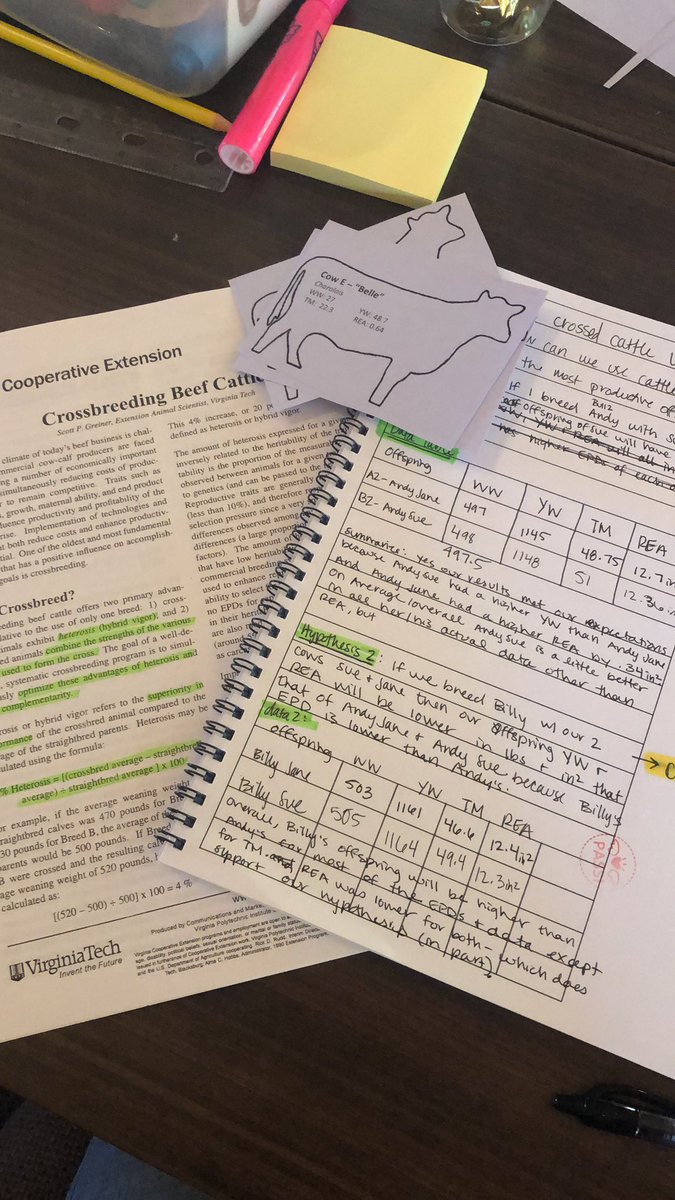 Cooperative Extension
Crossbreeding Beef Cattle
Scott P. Greiner, Extension Animal Scientist, Virginia Tech
climate of today's beef business is chal-
commercial cow-calf producers are faced
ing a number of economically important
simultaneously reducing costs of produc-
er to remain competitive. Traits such as
growth, maternal ability, and end product
fluence productivity and profitability of the
rise. Implementation of technologies and
at both reduce costs and enhance produc-
ntial. One of the oldest and most fundamental
that has a positive influence on accomplish-
goals is crossbreeding.
Crossbreed?
eeding beef cattle offers two primary advan-
relative to the use of only one breed: 1) cross-
animals exhibit heterosis (hybrid vigor), and 2)
animals combine the strengths of the various
used to form the cross. The goal of a well-de-
systematic crossbreeding program is to simul-
usly optimize these advantages of heterosis and
complementarity.
osis or hybrid vigor refers to the superiority in
ormance of the crossbred animal compared to the
age of the straightbred parents. Heterosis may be
culated using the formula:
% Heterosis = [(crossbred average – straightbred
average) ÷ straightbred average] x 100
example, if the average weaning weight
straightbred calves was 470 pounds for Breed
30 pounds for Breed B, the average of the
parents would be 500 pounds. If Breed
B were crossed and the resulting calves
age weaning weight of 520 pounds,
calculated as:
[(520 – 500) ÷ 500] x 100 = 4 %
This 4% increase, or 20 p
defined as heterosis or hybrid vigor.
The amount of heterosis expressed for a giv
inversely related to the heritability of the
tability is the proportion of the measur
observed between animals for a g
to genetics (and can be passed to the
Reproductive traits are generally
(less than 10%), and therefore
selection pressure since a very
differences observed among
differences (a large propor
factors). The amount
that have low heritab
commercial breedin
used to enhance
ability to select
no EPDs for
in their he
are also
(aroun
as carc
Imp
WW
Produced by Communications and Market
VirginiaTech
Invent the Future
Cow E – "Belle"
Charolais
WW: 27
YW: 48.7
TM: 22.3
REA: 0.64
crossed cattle
can we use cattle
the most productive
If I breed Andy with
offspring of Sue will have
YW & REA will all in
has higher EPDs of each
Offspring WW YW TM REA
A2-Andy Jane 497 1145 48.75 12.7in
B2-Andy Sue 498 1148 51
497.5
summarize: yes our results met our expectations
because Andy Sue had a higher YW than Andy Jane
And Andy Jane had a higher REA by .34 in²
on Average/overall Andy Sue is a little better
in all her/his actual data other than
REA, but
Hypothesis 2: If we breed Billy w/ our 2
cows Sue & Jane then our offspring YW &
REA will be lower in lbs & in² that
that of Andy Jane & Andy Sue because Billy's
EPD is lower than Andy's.
data 2:
offspring WW YW TM REA
Billy Jane 503 1161 46.6 12.4in²
Billy Sue 505 1164 49.4 12.3in²
overall, Billy's offspring will be higher than
Andy's for most of the EPDs & data except
for TM and REA was lower for both - which does
support our hypothesis (in part).